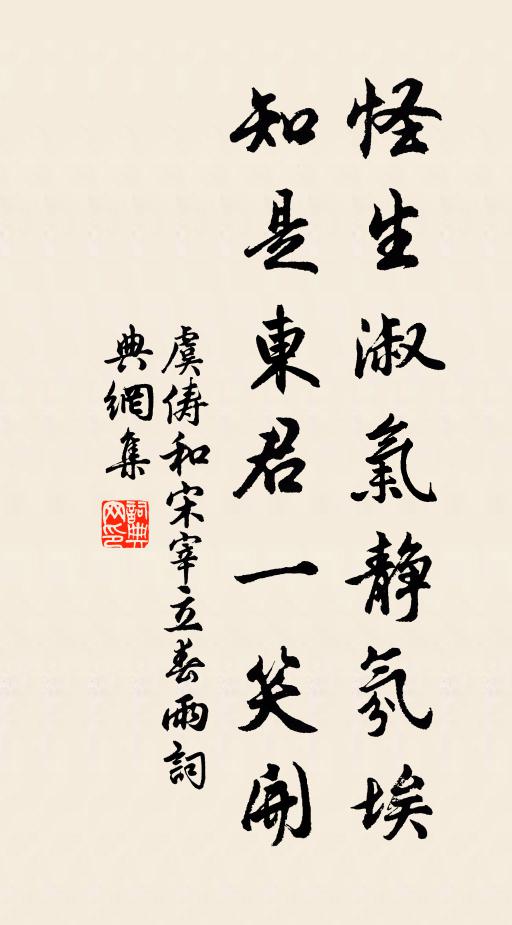 怪生淑氣靜氛埃
知是東君一笑開
虞儔和宋宰立春雨詞
典網集
詞典網印